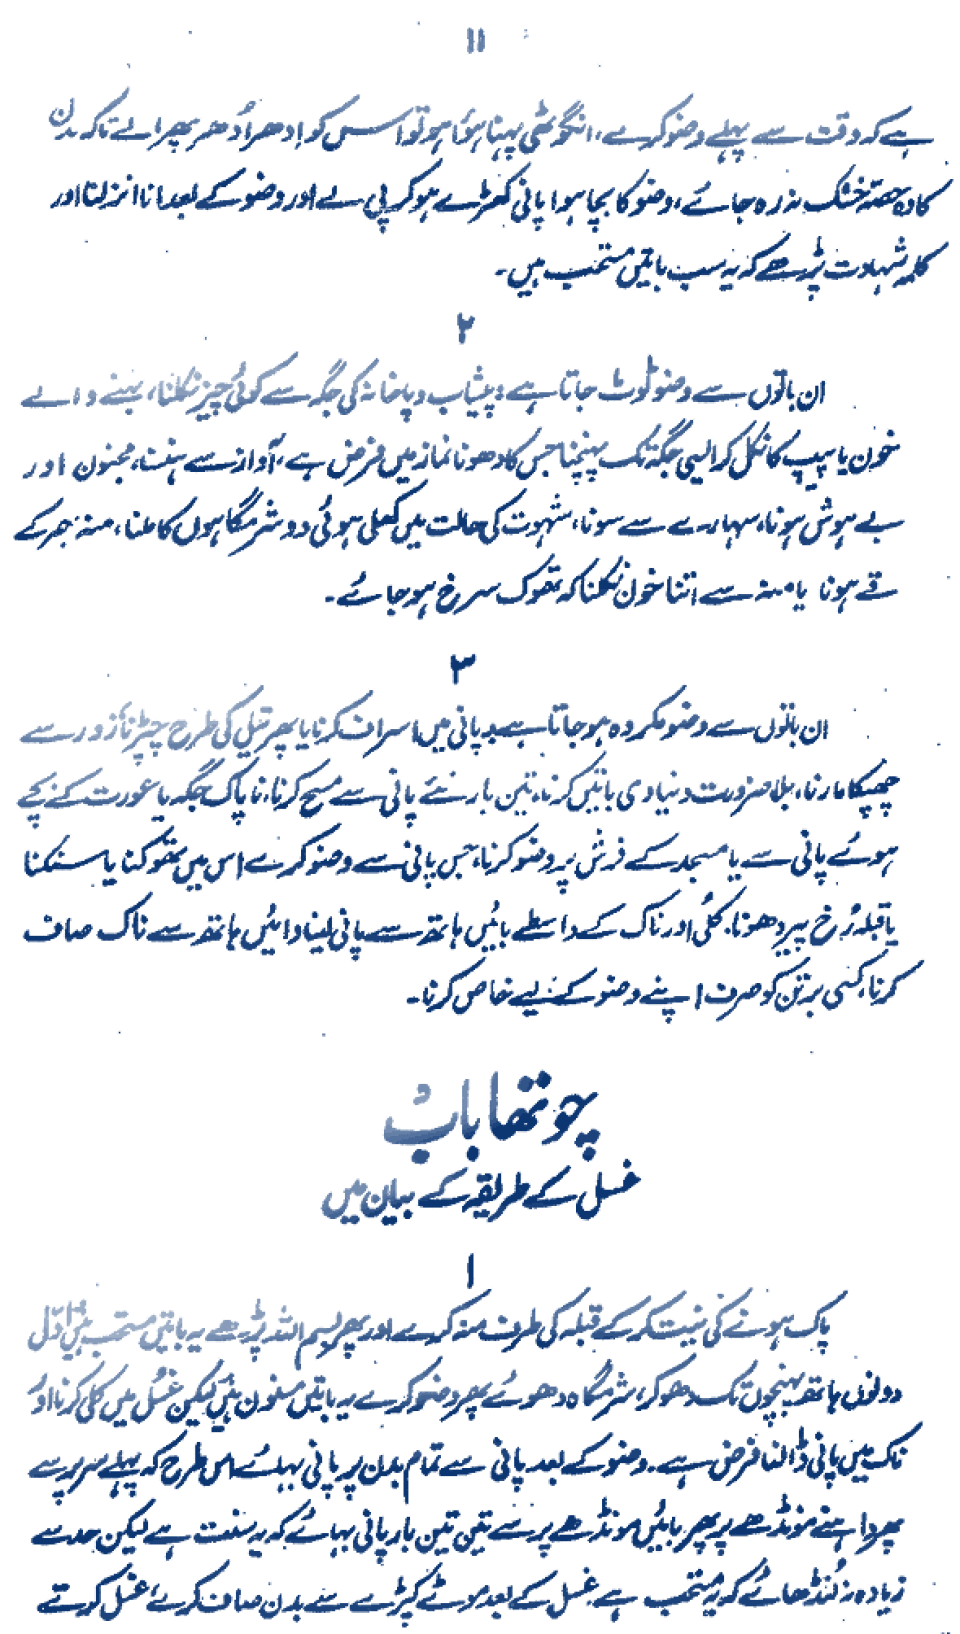 ۱۱
ہے کہ وقت سے پہلے وضو کرے، انگوٹھی پہنا ہوا ہو تو اس کو اِدھر اُدھر پھرالے تاکہ بدن
کا وہ حصہ خشک نہ رہ جائے، وضو کا بچا ہوا پانی کھڑے ہو کر پی لے اور وضو کے بعد انا انزلنا اور
کلمہ شہادت پڑھے کہ یہ سب باتیں مستحب ہیں۔
۲
ان باتوں سے وضو ٹوٹ جاتا ہے: پیشاب و پاخانہ کی جگہ سے کوئی چیز نکلنا، بہنے والے
خون یا پیپ کا نکل کر ایسی جگہ تک پہنچنا جس کا دھونا نماز میں فرض ہے، آواز سے ہنسنا، مجنون اور
بے ہوش ہونا، سہارے سے سونا، شہوت کی حالت میں کھلی ہوئی دو شرمگاہوں کا ملنا، منہ بھر کے
قے ہونا یا منہ سے اتنا خون نکلنا کہ تھوک سرخ ہو جائے۔
۳
ان باتوں سے وضو مکروہ ہو جاتا ہے۔ پانی میں اسراف کرنا یا پھر تیل کی طرح چپڑنا، زور سے
چھپکا مارنا، بلا ضرورت دنیاوی باتیں کرنا، تین بار نئے پانی سے مسح کرنا، ناپاک جگہ یا عورت کے بچے
ہوئے پانی سے یا مسجد کے فرش پر وضو کرنا، جس پانی سے وضو کرے اس میں تھوکنا یا سنکنا
یا قبلہ رُخ پیر دھونا، کلی اور ناک کے واسطے بائیں ہاتھ سے پانی لینا دائیں ہاتھ سے ناک صاف
کرنا، کسی برتن کو صرف اپنے وضو کے لیے خاص کرنا۔
چوتھا باب
غسل کے طریقہ کے بیان میں
۱
پاک ہونے کی نیت کر کے قبلہ کی طرف منہ کرے اور پھر بسم اللہ پڑھے یہ باتیں مستحب ہیں، اوّل
دونوں ہاتھ پہنچوں تک دھو کر، شرمگاہ دھوئے پھر وضو کرے یہ باتیں مسنون ہیں لیکن غسل میں کلی کرنا اور
ناک میں پانی ڈالنا فرض ہے۔ وضو کے بعد پانی سے تمام بدن پر پانی بہائے اس طرح کہ پہلے سر پر سے
پھر داہنے مونڈھے پر پھر بائیں مونڈھے پر سے تین تین بار پانی بہائے کہ یہ سنت ہے لیکن حد سے
زیادہ نہ لُنڈھائے کہ یہ مستحب ہے۔ غسل کے بعد موٹے کپڑے سے بدن صاف کرے، غسل کرتے